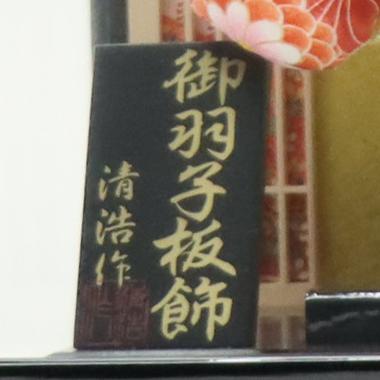 御羽子板飾
清浩作